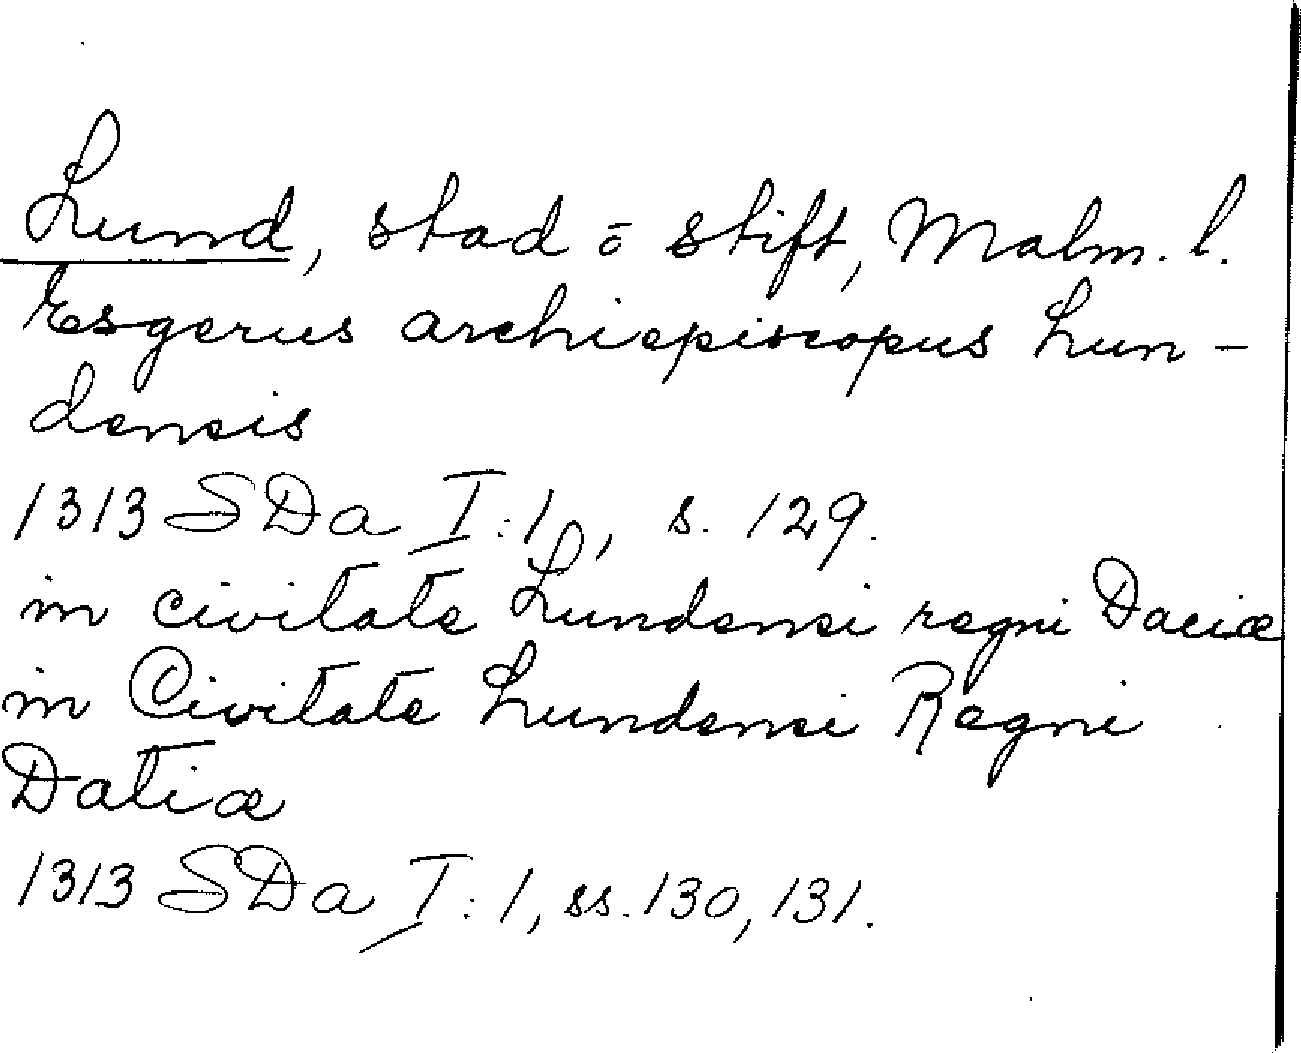 Lund, stad ō stift, Malm. l.
Esgerus archiepiscopus Lun-
densis
1313 SDa I:1, s. 129.
in civitate Lundensi regni Daciæ
in Civitate Lundensi Regni
Datiæ
1313 SDa I:1, ss. 130, 131.